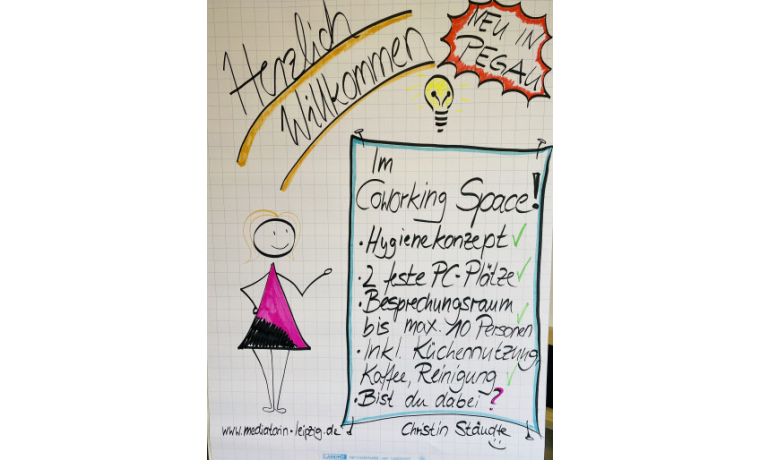 Herzlich
Willkommen
NEU IN
PEGAU
Im
Coworking Space!
• Hygienekonzept ✓
• 2 feste PC-Plätze ✓
• Besprechungsraum
bis max. 10 Personen ✓
• Inkl. Küchennutzung,
Kaffee, Reinigung ✓
• Bist du dabei?
www.mediatorin-leipzig.de
Christin Städtke